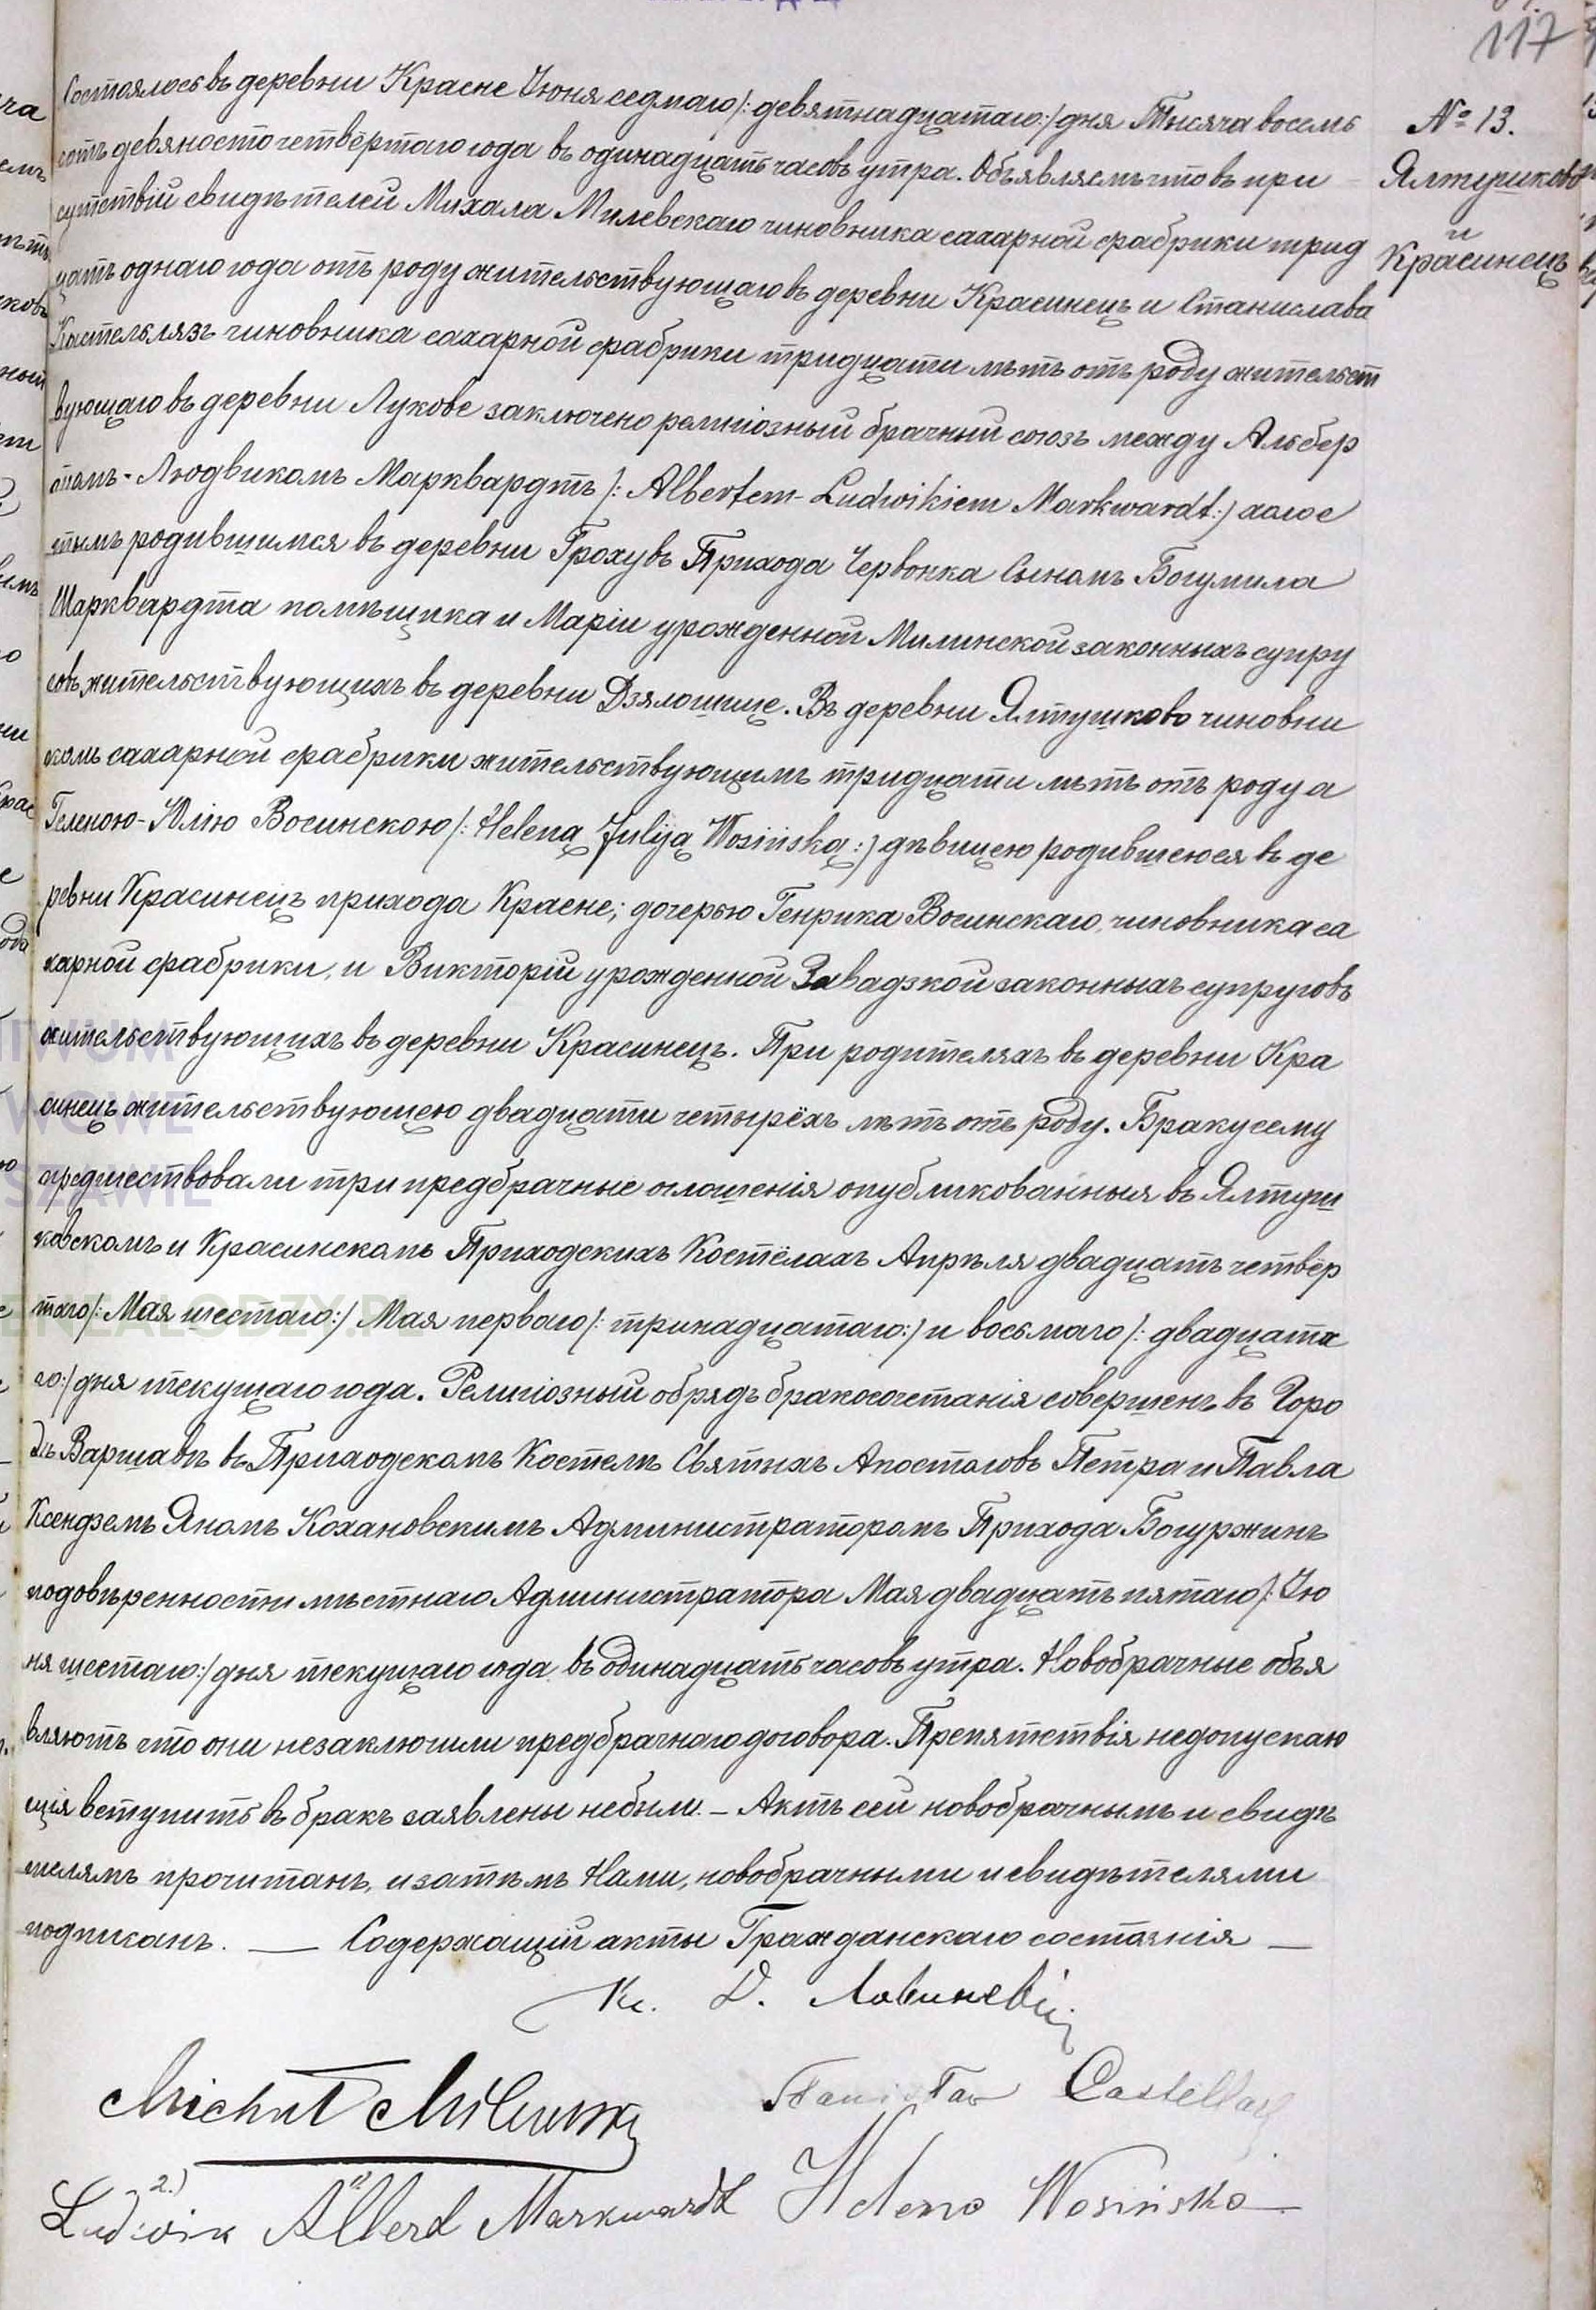 117
№ 13.
Ялтушково
и
Красинецъ
Состоялось въ деревни Красне Июня седмаго /: девятнадцатаго :/ дня Тысяча восемь
сотъ девяносто четвёртаго года въ одинадцать часовъ утра. Объявляемъ что въ при
сутствіи свидѣтелей Михала Милевскаго чиновника сахарной фабрики трид
цать однаго года отъ роду жительствующаго въ деревни Красинецъ и Станислава
Кастеллязъ чиновника сахарной фабрики тридцати лѣтъ отъ роду жительст
вующаго въ деревни Лукове заключено религіозный брачный союзъ между Альбер
томъ-Людвикомъ Марквардтъ /: Albertem-Ludwikiem Markwardt :/ холос
тымъ родившимся въ деревни Грохувъ Прихода Червонка Сыномъ Богумила
Марквардта помѣщика и Маріи урожденной Милинской законныхъ супру
говъ жительствующихъ въ деревни Дзялошице. Въ деревни Ялтушково чиновни
комъ сахарной фабрики жительствующимъ тридцати лѣтъ отъ роду а
Геленою-Юлію Восинскою /: Heleną Juliją Wosińską :/ дѣвицею родившеюся въ де
ревни Красинецъ прихода Красне; дочерью Генрика Восинскаго, чиновника са
харной фабрики, и Викторіи урожденной Завадзкой законныхъ супруговъ
жительствующихъ въ деревни Красинецъ. При родителяхъ въ деревни Кра
синецъ жительствующею двадцати четырёхъ лѣтъ отъ роду. Браку сему
предшествовали три предбрачные оглашенія опубликованныя въ Ялтуш
ковскомъ и Красинскомъ Приходскихъ Костёлахъ Апрѣля двадцать четвёр
таго /: Мая шестаго :/ Мая перваго /: тринадцатаго :/ и восьмаго /: двадцата
го :/ дня текущаго года. Религіозный обрядъ бракосочетанія совершенъ въ Горо
дѣ Варшавѣ въ Приходскомъ Костелѣ Святыхъ Апостоловъ Петра и Павла
Ксендземъ Яномъ Кохановскимъ Администраторомъ Прихода Богуржинъ
по довѣренности мѣстнаго Администратора Мая двадцать пятаго /: Ию
ня шестаго :/ дня текущаго года въ одинадцать часовъ утра. Новобрачные объя
вляютъ что они незаключили предбрачнаго договора. Препятствія недопускаю
щія вступить въ бракъ заявлены небыли. – Актъ сей новобрачнымъ и свидѣ
телямъ прочитанъ, и затѣмъ Нами, новобрачными и свидѣтелями
подписанъ. — Содержащій акты Гражданскаго состоянія —
Кс. Д.
Michał Milewski
Stanisław Castellaz
Ludwik Albert Markwardt
Helena Wosińska